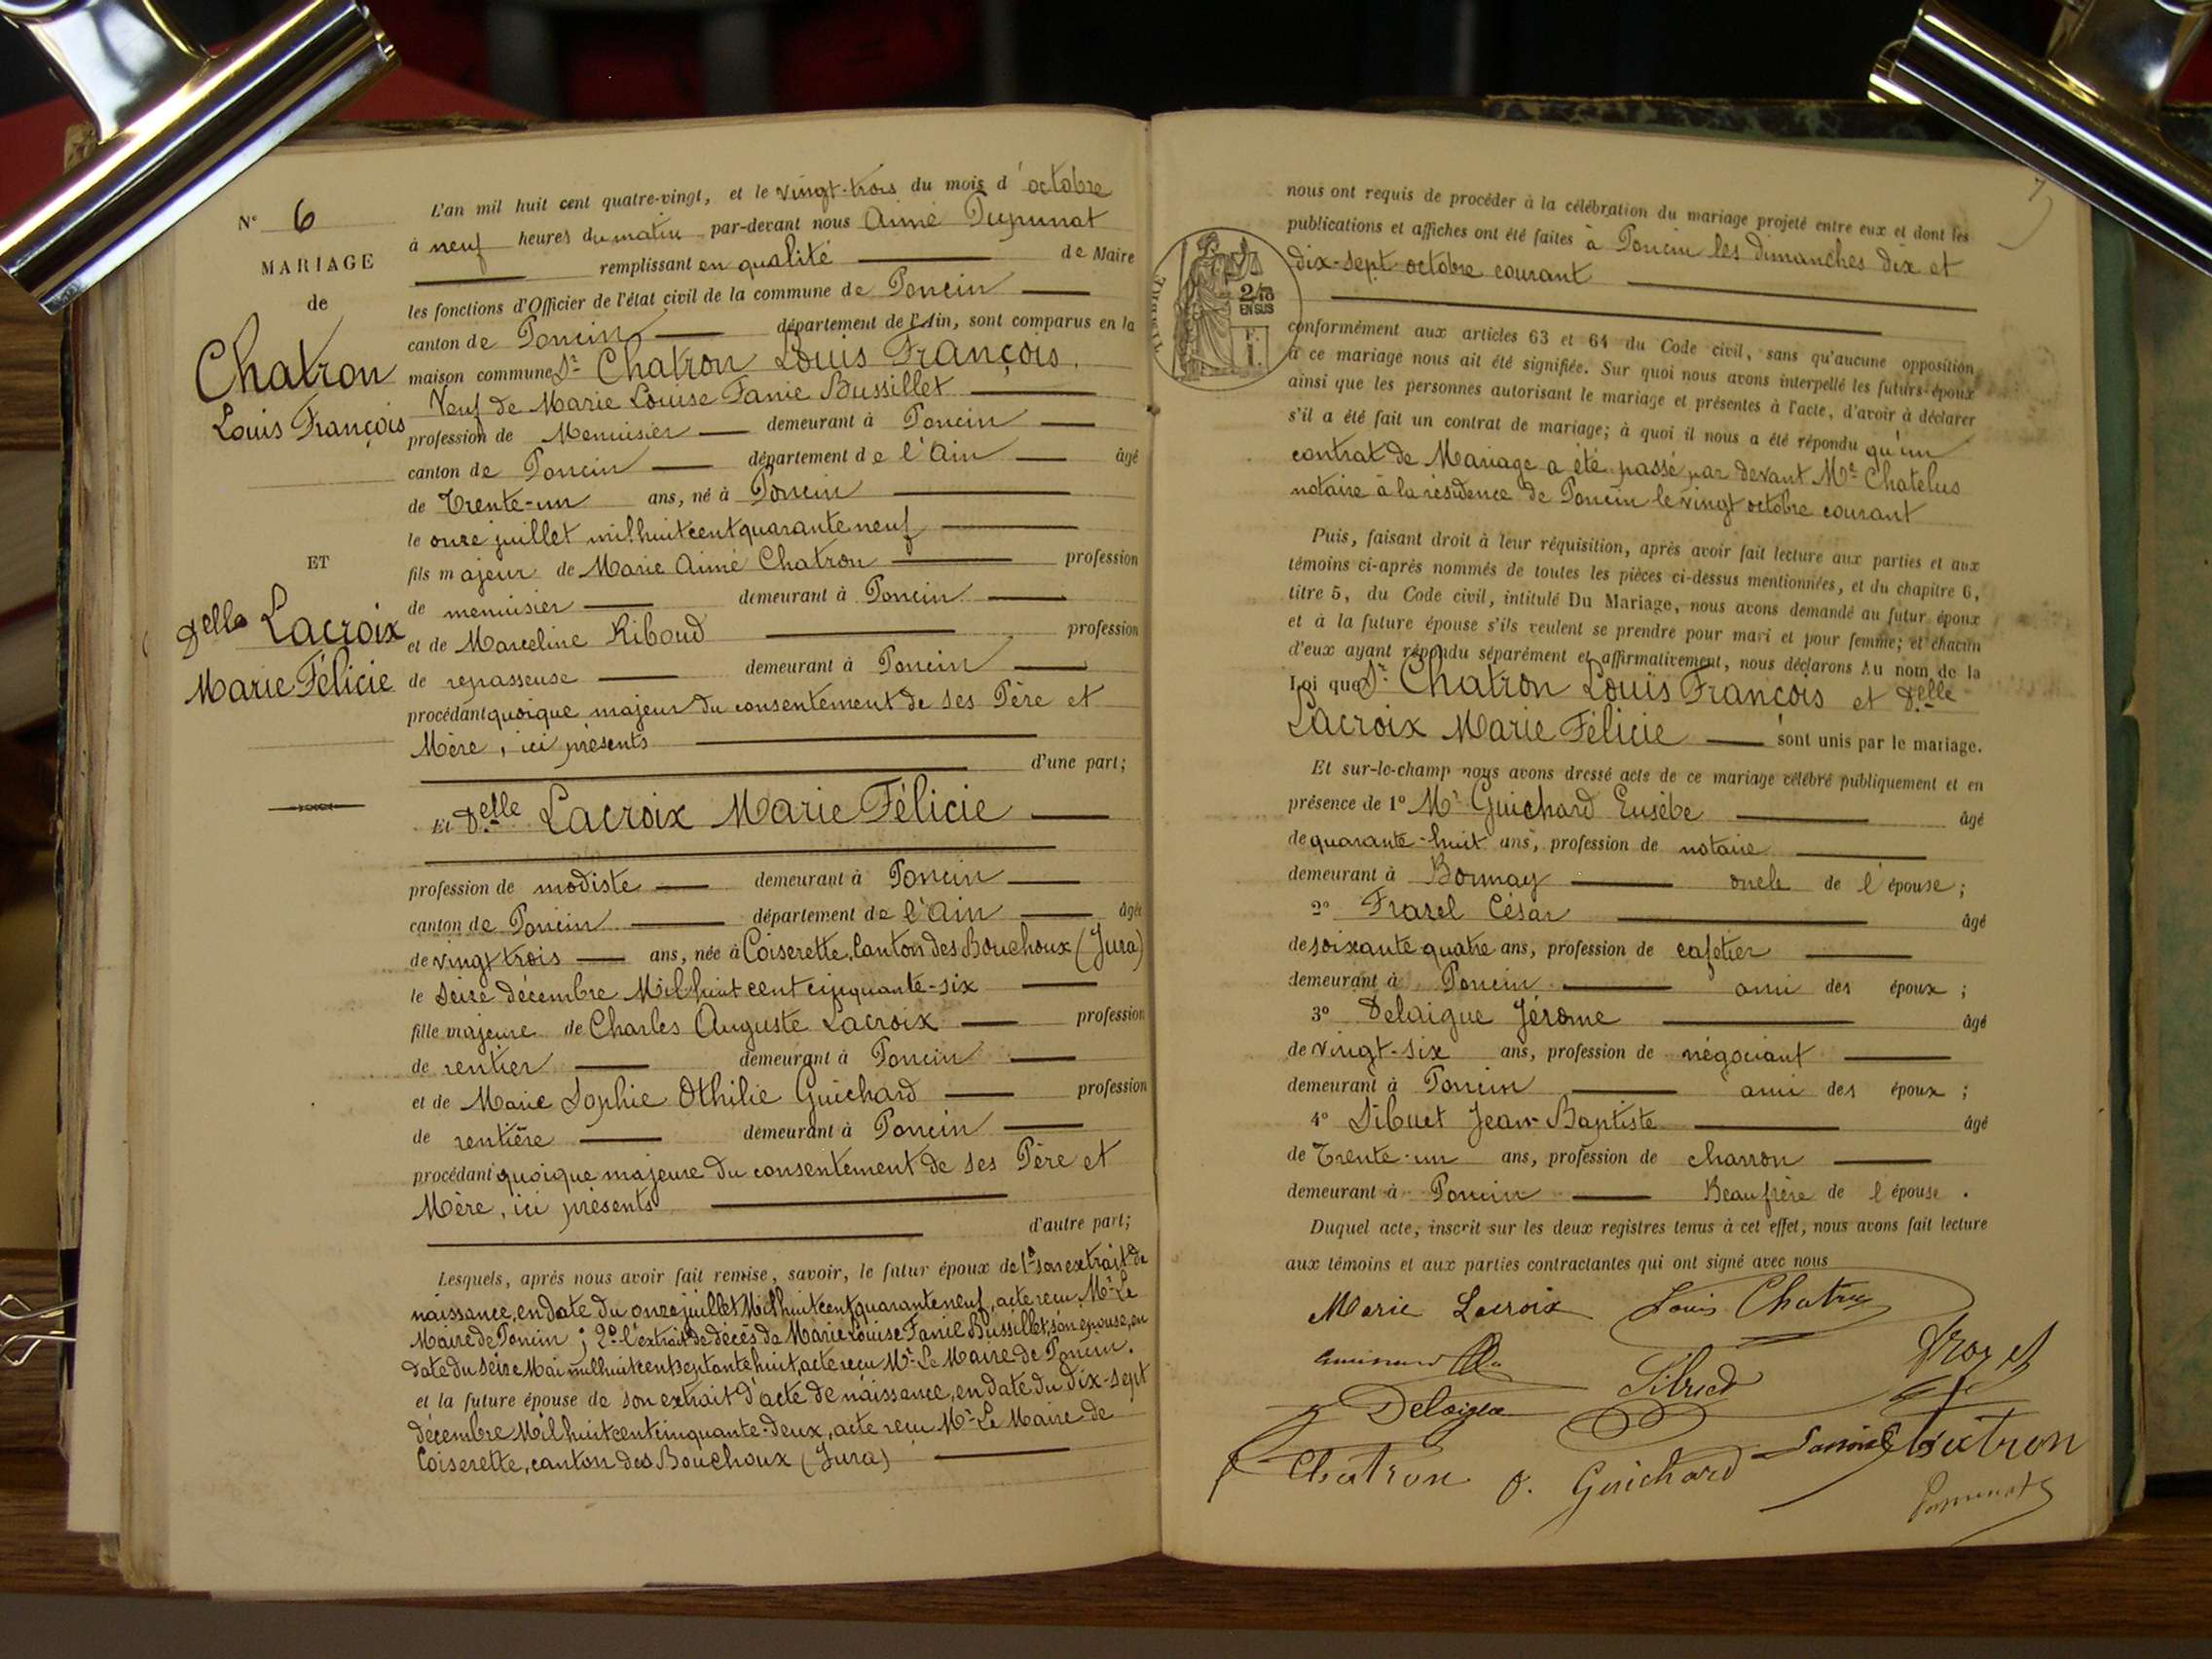 N° 6
MARIAGE
de
Chatron
Louis François
ET
Delle Lacroix
Marie Félicie
L'an mil huit cent quatre-vingt, et le vingt-trois du mois d'octobre
à neuf heures du matin par-devant nous Aimé
remplissant en qualité de Maire
les fonctions d'Officier de l'état civil de la commune de Poncin
canton de Poncin département de l'Ain, sont comparus en la
maison commune Sr Chatron Louis François.
Veuf de Marie Louise Fanie Bussillet
profession de Menuisier demeurant à Poncin
canton de Poncin département de l'Ain âgé
de Trente-un ans, né à Poncin
le onze juillet mil huit cent quarante neuf
fils majeur de Marie Aimé Chatron profession
de menuisier demeurant à Poncin
et de Marceline Riboud profession
de repasseuse demeurant à Poncin
procédant quoique majeur du consentement de ses Père et
Mère, ici présents
d'une part;
Et Delle Lacroix Marie Félicie
profession de modiste demeurant à Poncin
canton de Poncin département de l'Ain âgée
de vingt trois ans, née à Coiserette, Canton des Bouchoux (Jura)
le seize décembre Mil huit cent cinquante-six
fille majeure de Charles Auguste Lacroix profession
de rentier demeurant à Poncin
et de Marie Sophie Othilie Guichard profession
de rentière demeurant à Poncin
procédant quoique majeure du consentement de ses Père et
Mère, ici présents
d'autre part;
Lesquels, après nous avoir fait remise, savoir, le futur époux de 1° son extrait de
naissance, en date du onze juillet Mil huit cent quarante neuf, acte reçu Mr Le
Maire de Poncin ; 2° l'extrait de décès de Marie Louise Fanie Bussillet, son épouse, en
date du seize Mai mil huit cent septante huit, acte reçu Mr Le Maire de Poncin.
et la future épouse de son extrait d'acte de naissance, en date du dix-sept
décembre Mil huit cent cinquante-deux, acte reçu Mr Le Maire de
Coiserette, canton des Bouchoux (Jura)
7
2/10
EN SUS
nous ont requis de procéder à la célébration du mariage projeté entre eux et dont les
publications et affiches ont été faites à Poncin les dimanches dix et
dix-sept octobre courant
conformément aux articles 63 et 64 du Code civil, sans qu'aucune opposition
à ce mariage nous ait été signifiée. Sur quoi nous avons interpellé les futurs-époux
ainsi que les personnes autorisant le mariage et présentes à l'acte, d'avoir à déclarer
s'il a été fait un contrat de mariage; à quoi il nous a été répondu qu'un
contrat de Mariage a été passé par devant Me Chatelus
notaire à la résidence de Poncin le vingt octobre courant
Puis, faisant droit à leur réquisition, après avoir fait lecture aux parties et aux
témoins ci-après nommés de toutes les pièces ci-dessus mentionnées, et du chapitre 6,
titre 5, du Code civil, intitulé Du Mariage, nous avons demandé au futur époux
et à la future épouse s'ils veulent se prendre pour mari et pour femme; et chacun
d'eux ayant répondu séparément et affirmativement, nous déclarons Au nom de la
Loi que Sr Chatron Louis François et Delle
Lacroix Marie Félicie sont unis par le mariage.
Et sur-le-champ nous avons dressé acte de ce mariage célébré publiquement et en
présence de 1° Mr Guichard Eusèbe âgé
de quarante-huit ans, profession de notaire
demeurant à oncle de l'épouse;
2° César âgé
de soixante quatre ans, profession de cafetier
demeurant à Poncin ami des époux ;
3° Delaigue Jérome âgé
de vingt-six ans, profession de négociant
demeurant à Poncin ami des époux ;
4° Sibuet Jean-Baptiste âgé
de Trente-un ans, profession de charron
demeurant à Poncin Beau frère de l'épouse.
Duquel acte, inscrit sur les deux registres tenus à cet effet, nous avons fait lecture
aux témoins et aux parties contractantes qui ont signé avec nous
Marie Lacroix Louis Chatron
Delaigue
Chatron O. Guichard Chatron